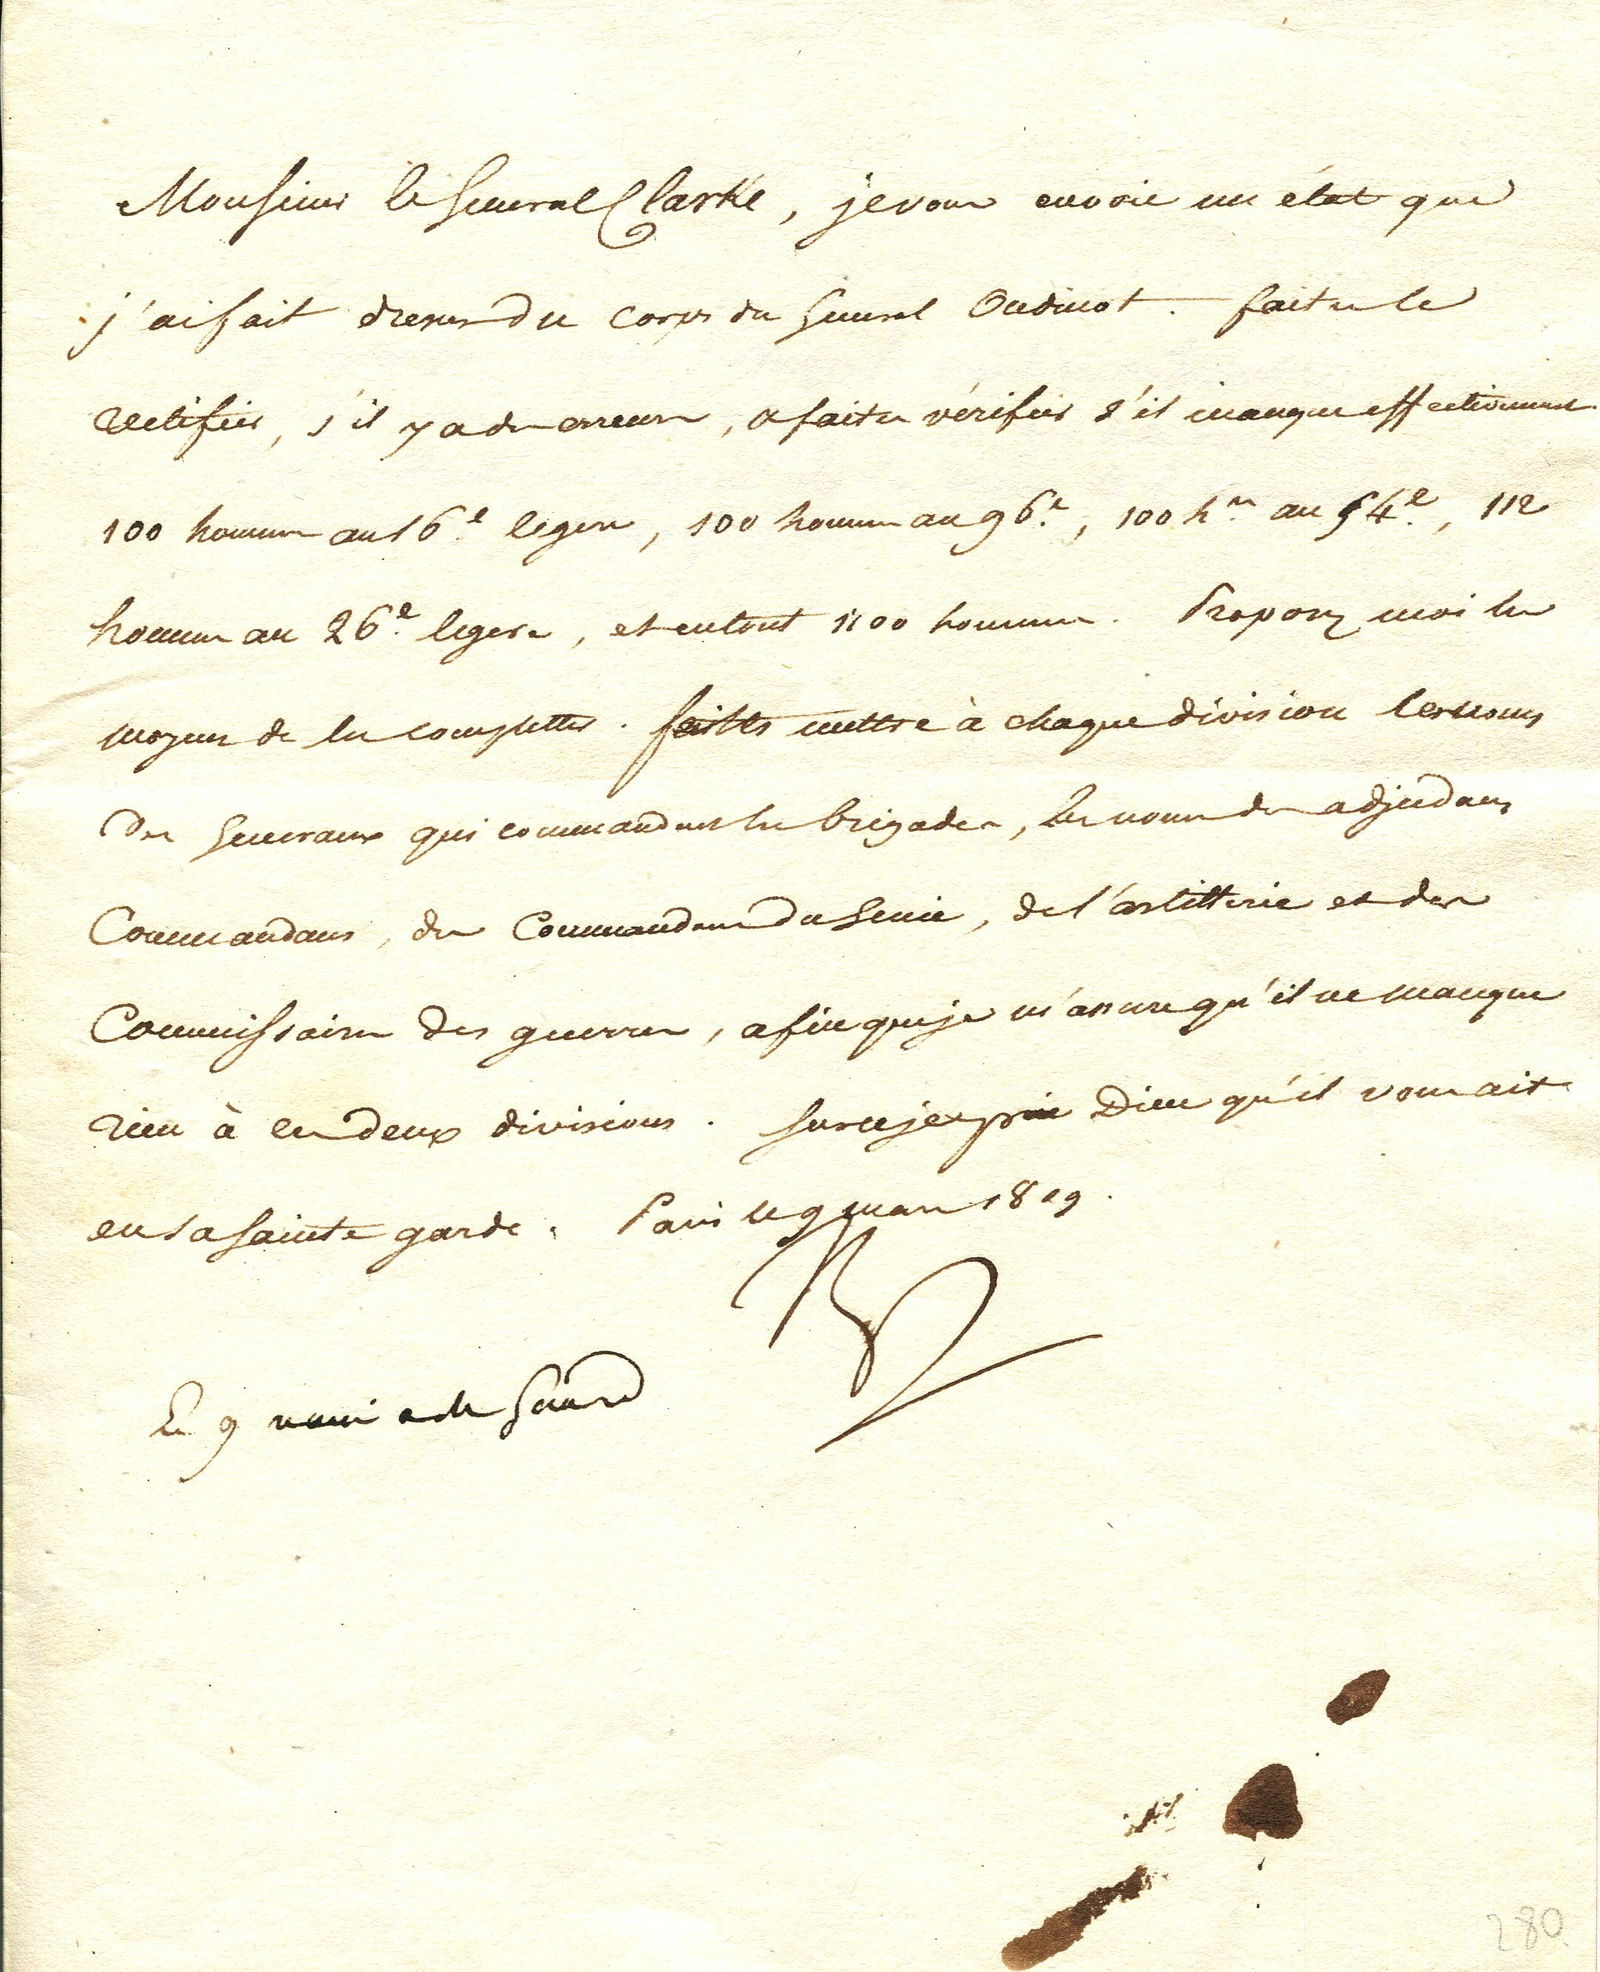 Monsieur le Général Clarke, je vous envoie un état que
j'ai fait dresser du corps du Général Oudinot. faites le
rectifier, s'il y a des erreurs, & faites vérifier s'il manque effectivement
100 hommes au 16.e legers, 100 hommes au 96.e, 100 h.es au 54.e, 112
hommes au 26.e legers, et en tout 1100 hommes. Proposez moi les
moyens de les completter. faites mettre à chaque division les noms
des Generaux qui commandent les brigades, les noms des adjudans
Commandans, des Commandans du Genie, de l'artillerie et des
Commissaires des guerres, afin que je m'assure qu'il ne manque
rien à ces deux divisions. Sur ce je prie Dieu qu'il vous ait
en sa sainte garde. Paris le 9 mars 1809.
Le 9
280